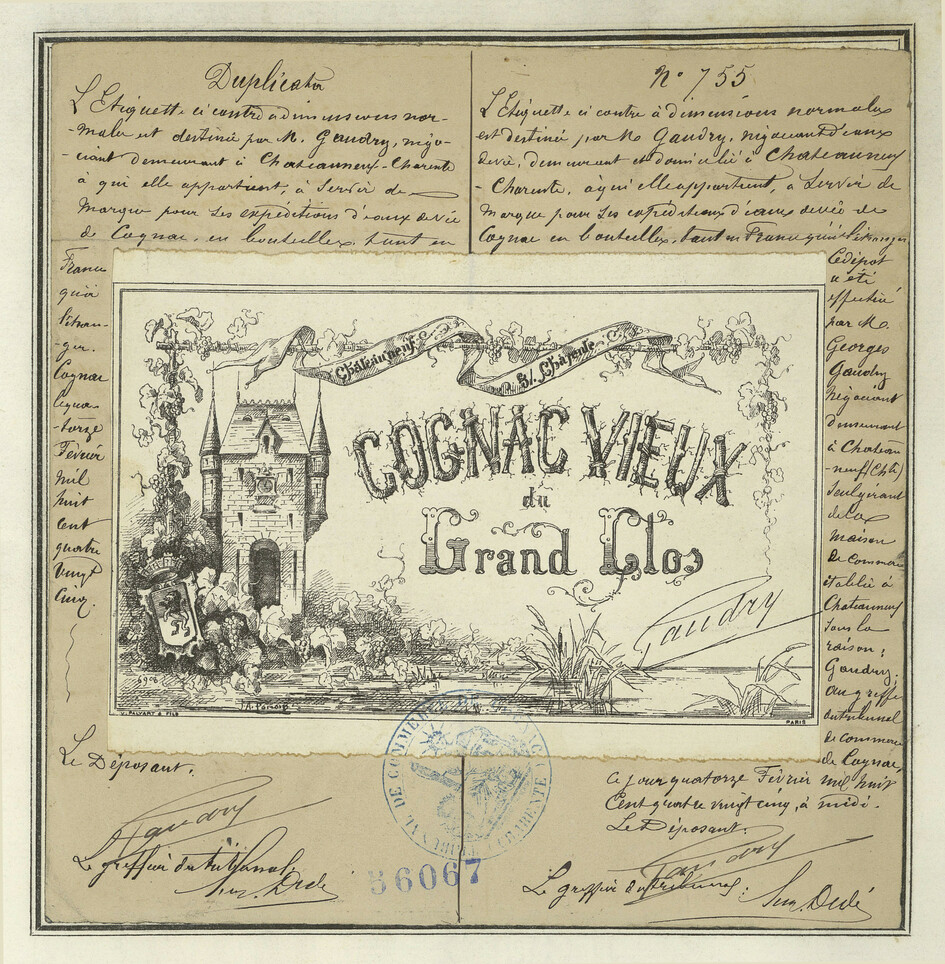 Duplicata
L'Etiquette ci contre à dimensions nor-
-males est destinée par M. Gaudry, négo-
-ciant demeurant à Chateauneuf-Charente
à qui elle appartient, à Servir de
Marque pour ses expéditions d'eaux de vie
de Cognac, en bouteilles, tant en
France
qu'à
l'étran-
-ger.
Cognac
le qua-
-torze
Février
mil
huit
cent
quatre
vingt
cinq.
Le Déposant.
Gaudry
Le greffier du tribunal
N° 755
L'Etiquette ci contre à dimensions normales
est destinée par M. Gaudry, négociant d'eaux
de vie, demeurant et domicilié à Chateauneuf
-Charente, à qui elle appartient, à Servir de
Marque pour ses expéditions d'eaux de vie de
Cognac en bouteilles, tant en France qu'à l'étranger
Le dépôt
a été
effectué
par M.
Georges
Gaudry
Négociant
demeurant
à Chateau
-neuf (Chte)
seul gérant
de la
maison
de commerce
établie à
Chateauneuf
sous la
raison :
Gaudry,
au greffe
du tribunal
de commerce
de Cognac,
ce jour quatorze Février mil huit
Cent quatre vingt cinq, à midi.
Le Déposant.
Gaudry
Le greffier du tribunal :
Châteauneuf
s/. Charente
COGNAC VIEUX
du
Grand Clos
Gaudry
5906
V. PALYART & FILS
PARIS
TRIBUNAL DE COMMERCE DE COGNAC CHARENTE
56067